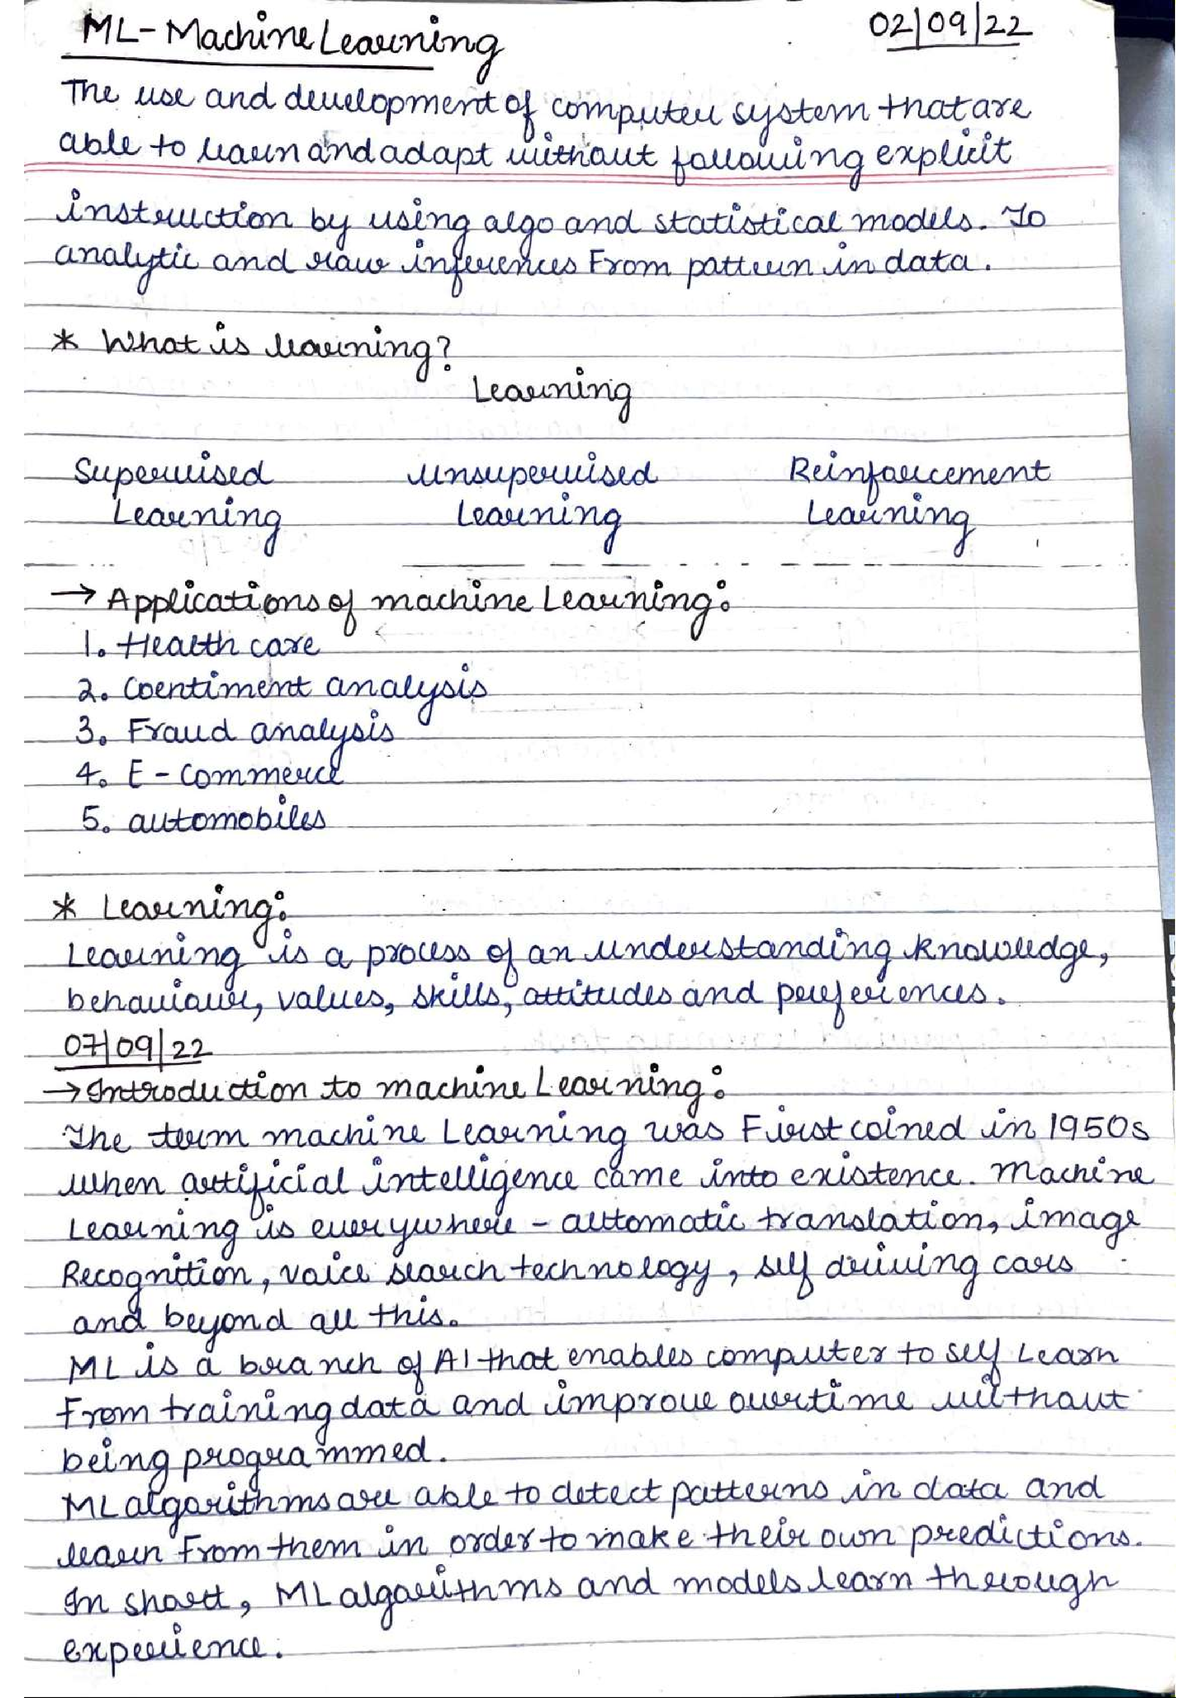 ML - Machine Learning 02/09/22
The use and development of computer system that are
able to learn and adapt without following explicit
instruction by using algo and statistical models. To
analytic and raw inferences From pattern in data.
* What is learning?
Learning
Supervised unsupervised Reinforcement
Learning Learning Learning
→ Applications of machine Learning:
1. Health care
2. Coentiment analysis
3. Fraud analysis
4. E - Commerce
5. automobiles
* Learning:
Learning is a process of an understanding knowledge,
behaviour, values, skills, attitudes and preferences.
07/09/22
→ Introduction to machine Learning:
The term machine Learning was First coined in 1950s
when artificial intelligence came into existence. Machine
Learning is everywhere - automatic translation, image
Recognition, voice search technology, self driving cars
and beyond all this.
ML is a branch of AI that enables computer to self Learn
From training data and improve overtime without
being programmed.
ML algorithms are able to detect patterns in data and
learn From them in order to make their own predictions.
In short, ML algorithms and models learn through
experience.